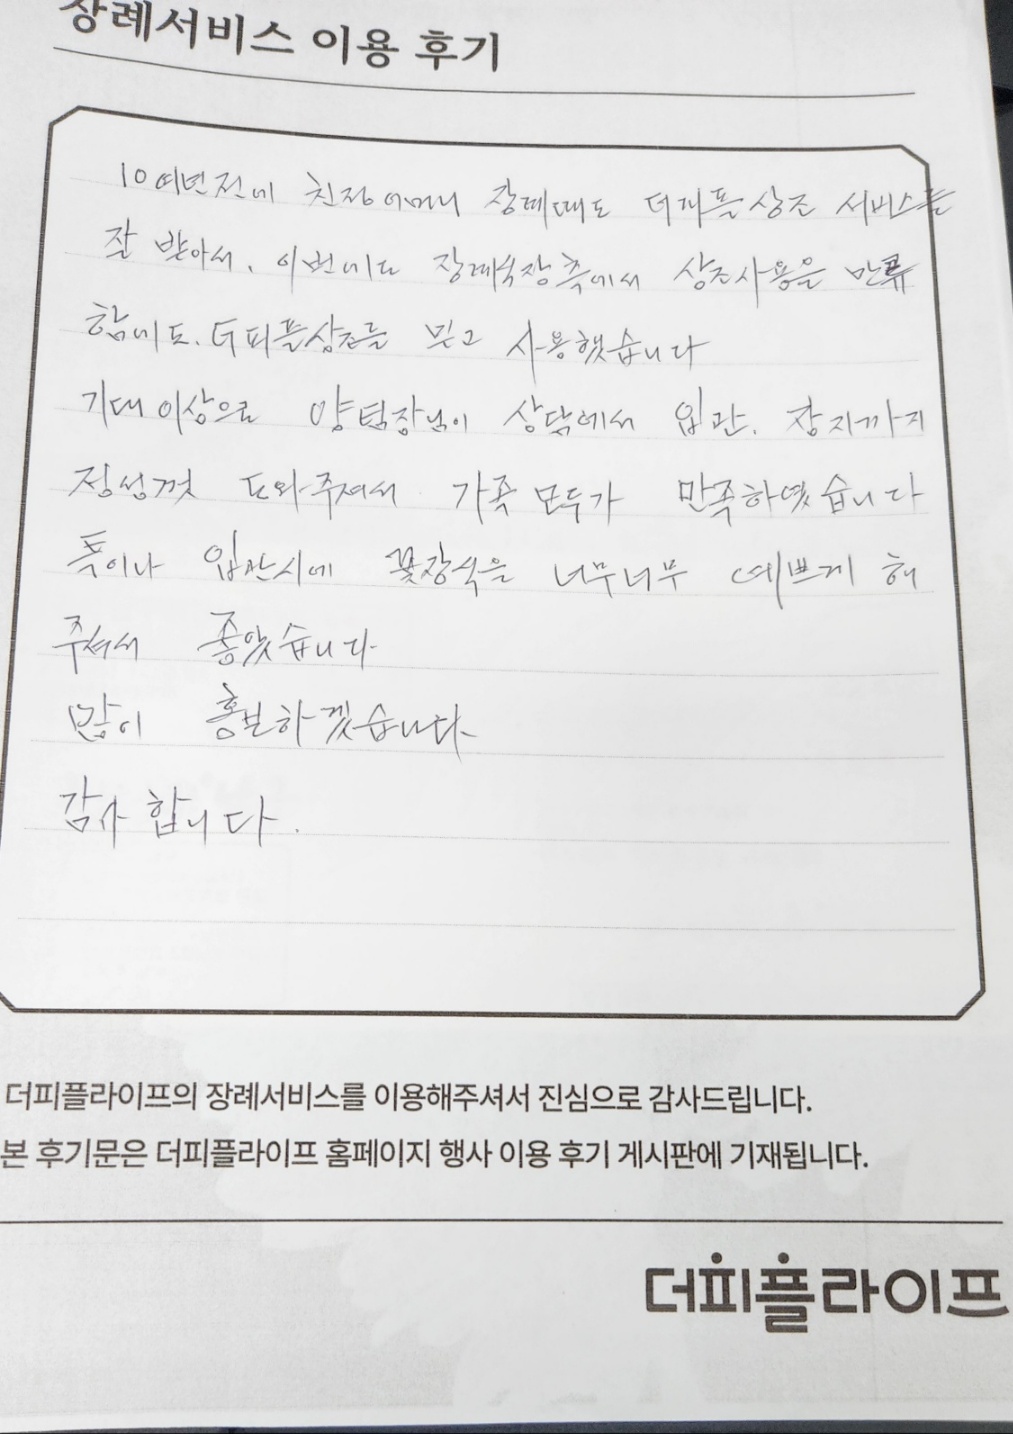 장례서비스 이용 후기
10여년전에 친정어머니 장례때도 더피플상조 서비스를
잘 받아서, 이번에도 장례식장측에서 상조사용을 만류
함에도, 더피플상조를 믿고 사용했습니다
기대이상으로 양팀장님이 상담에서 입관, 장지까지
정성껏 도와주셔서 가족모두가 만족하였습니다
특이나 입관시에 꽃장식을 너무너무 예쁘게 해
주셔서 좋았습니다
많이 홍보하겠습니다
감사합니다.
더피플라이프의 장례서비스를 이용해주셔서 진심으로 감사드립니다.
본 후기문은 더피플라이프 홈페이지 행사 이용 후기 게시판에 기재됩니다.
더피플라이프